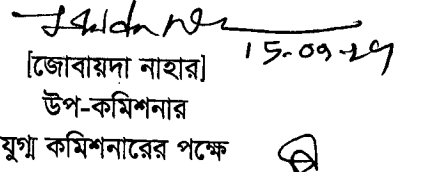 15-09-29
[জোবায়দা নাহার]
উপ-কমিশনার
যুগ্ম কমিশনারের পক্ষে